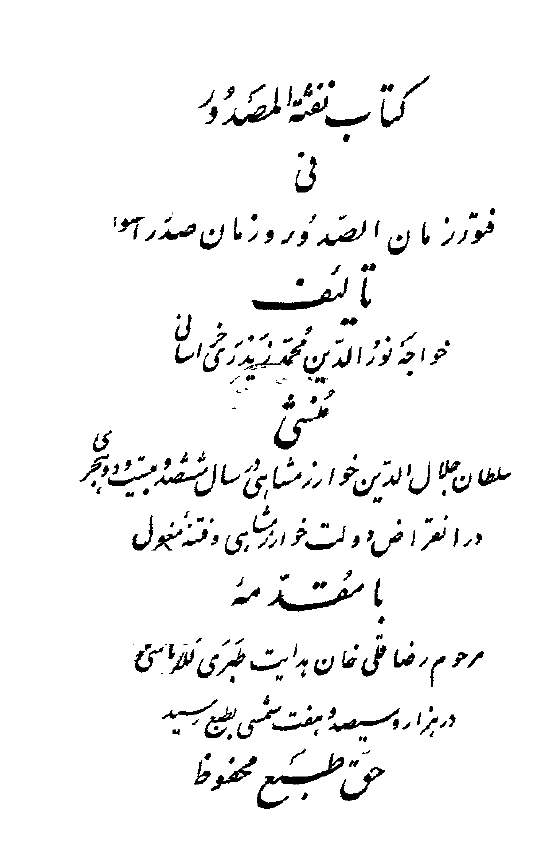 کتاب نفثة المصدور
فی
فتور زمان الصّدور و زمان صدر
تألیف
خواجه نورالدّین محمّد زیدری خراسانی
منشی
سلطان جلال الدّین خوارزمشاهی در سال ششصد و بیست و دو هجری
در انقراض دولت خوارزمشاهی و فتنهٔ مغول
با مقدّمهٔ
مرحوم رضا قلی خان هدایت طبری للاباشی
در هزار و سیصد و هفت شمسی بطبع رسید
حقّ طبع محفوظ